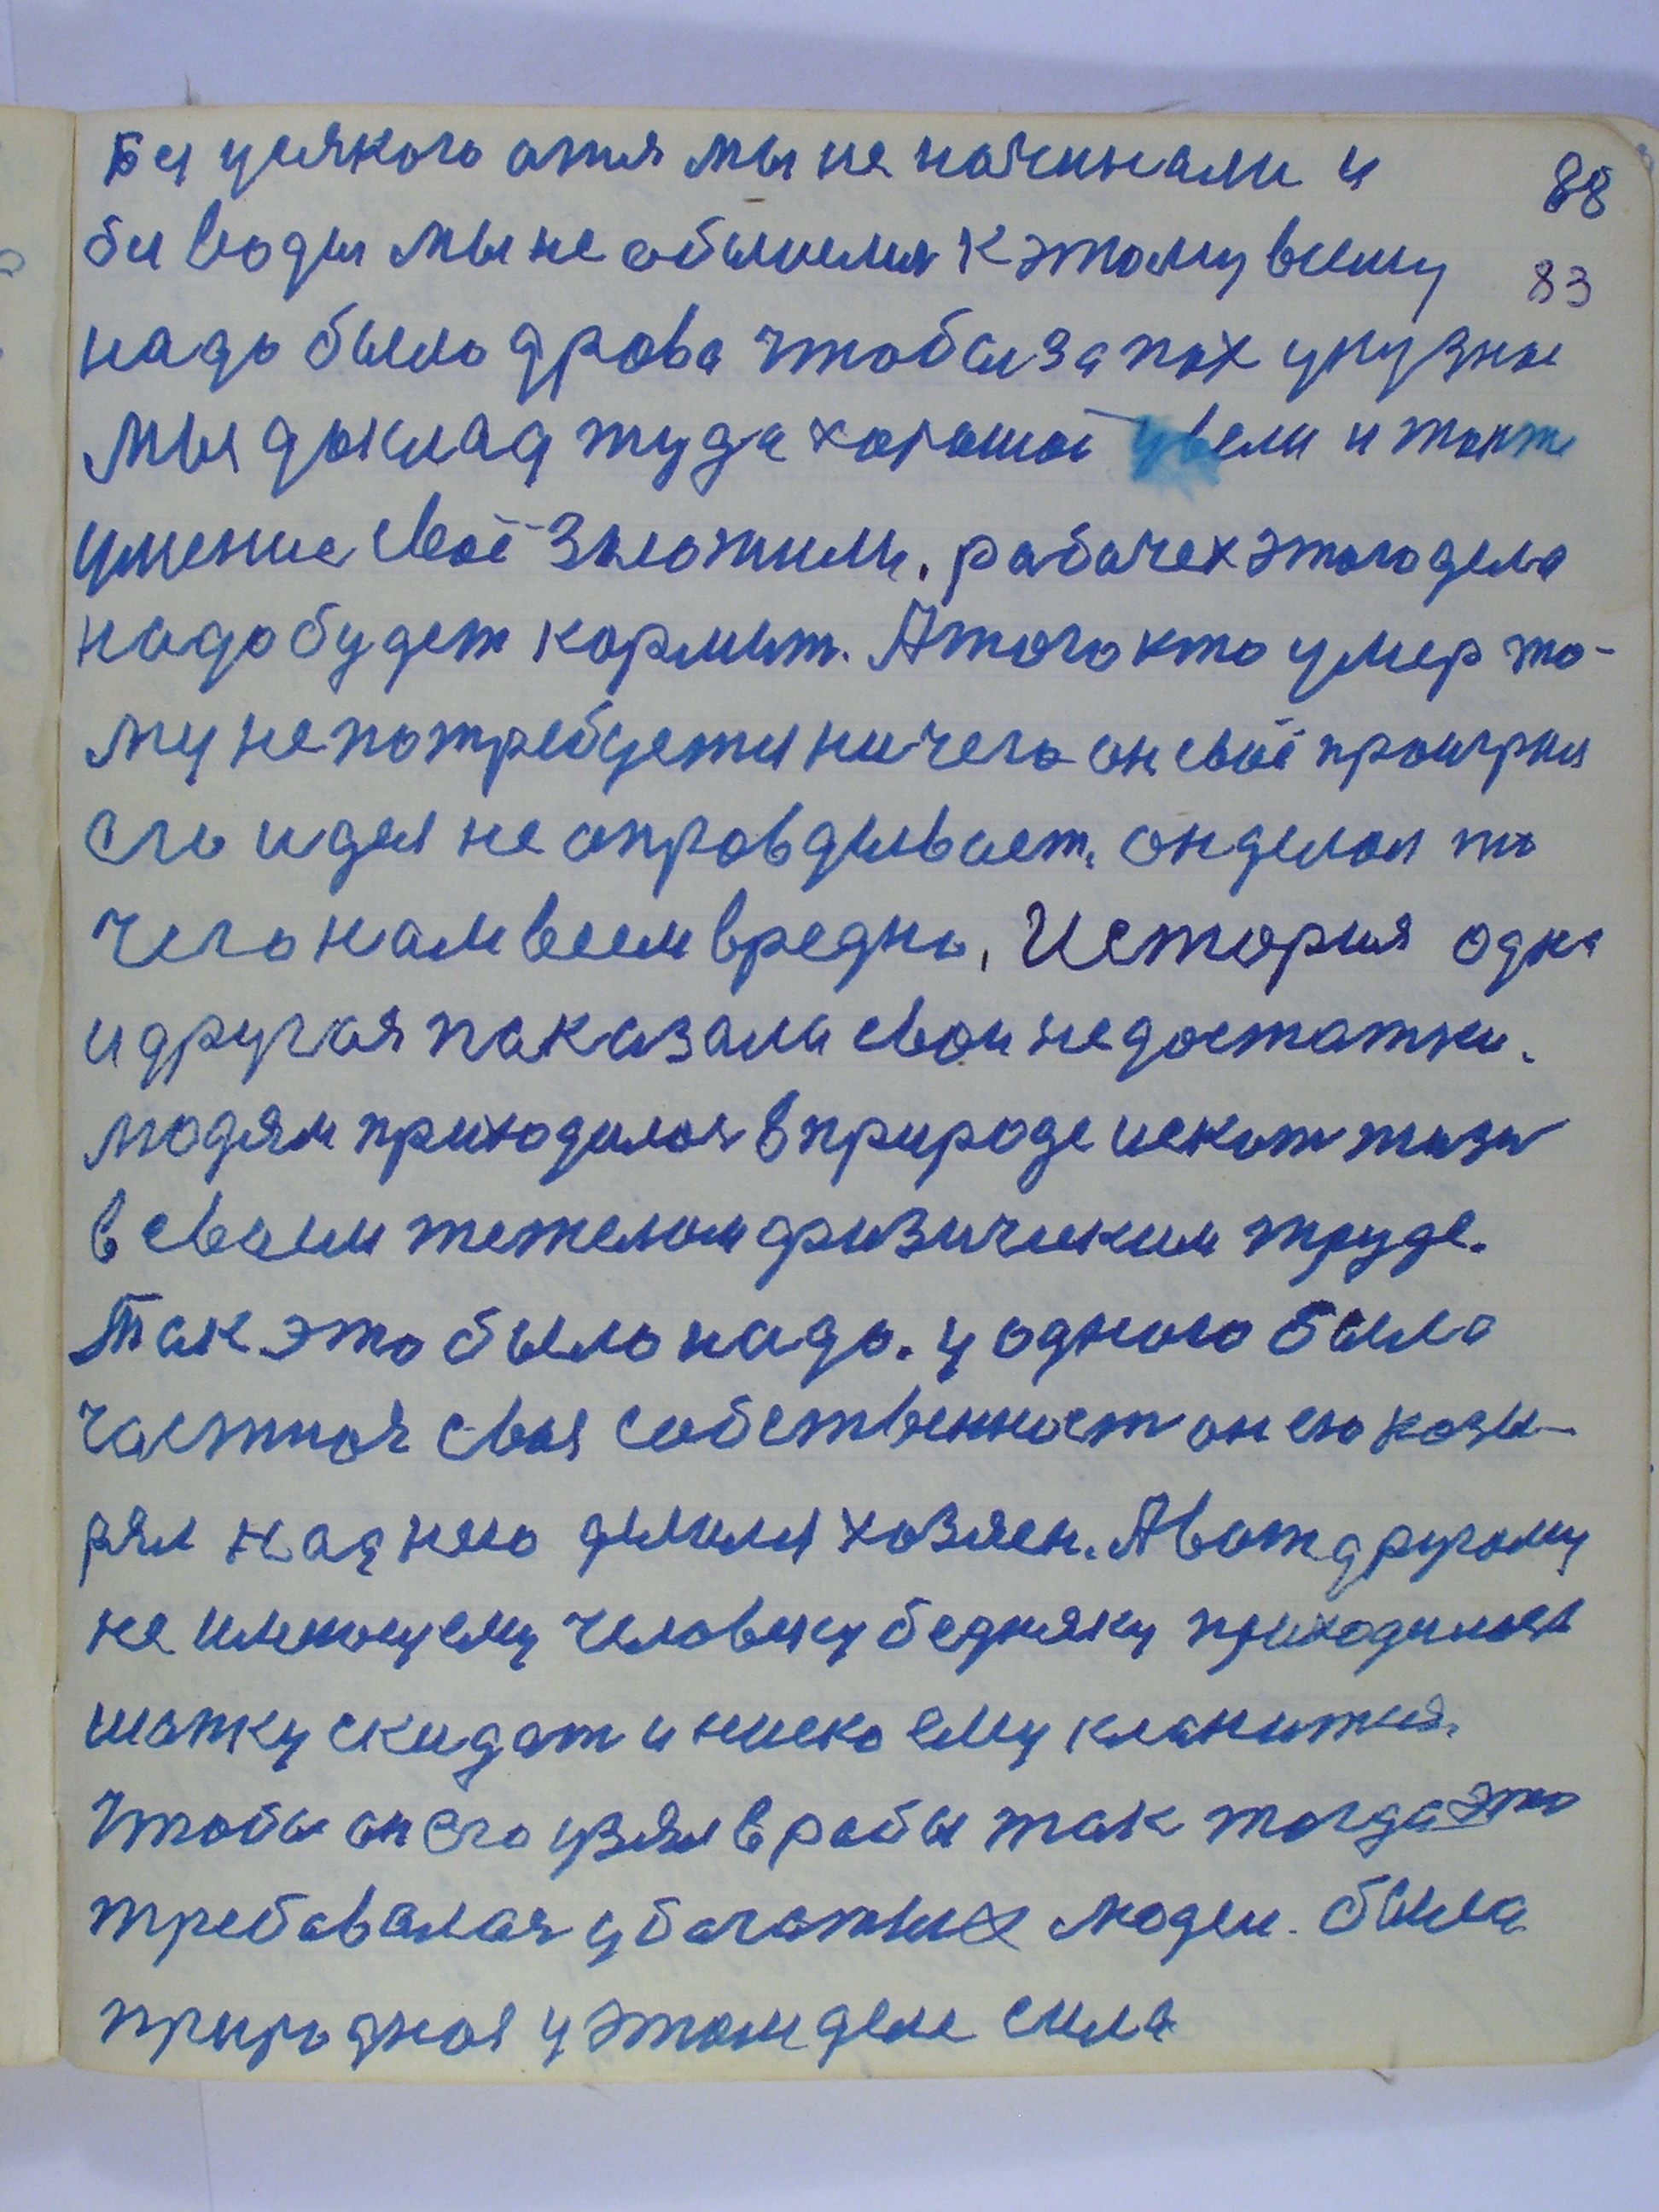 Без усякого огня мы не начинали и 88
без воды мы не обошлися к этому всему 83
надо было дрова чтобы запах упузные
мы доклад туда хорошой увели и тоже
умение своё вложили. рабочех этого дела
надо будет кормит. А того кто умер то-
му не потребуется ничего он своё проиграл
его идея не оправдывает. он делал то
чего нам всем вредно. История одна
и другая паказали свои недостатки.
людям приходилося в природе искат жизн
в своем тежелом физическим труде.
Так это было надо. у одного была
частноя своя собственност он ею козы-
рял над нею длился хозяен. А вот другому
не имеющему человеку бедняку приходилося
шапку скидат и ниско ему кланится.
Чтобы он его узял в робы так тогда это
требавалася у богатых людеи. была
природноя у этом деле сила